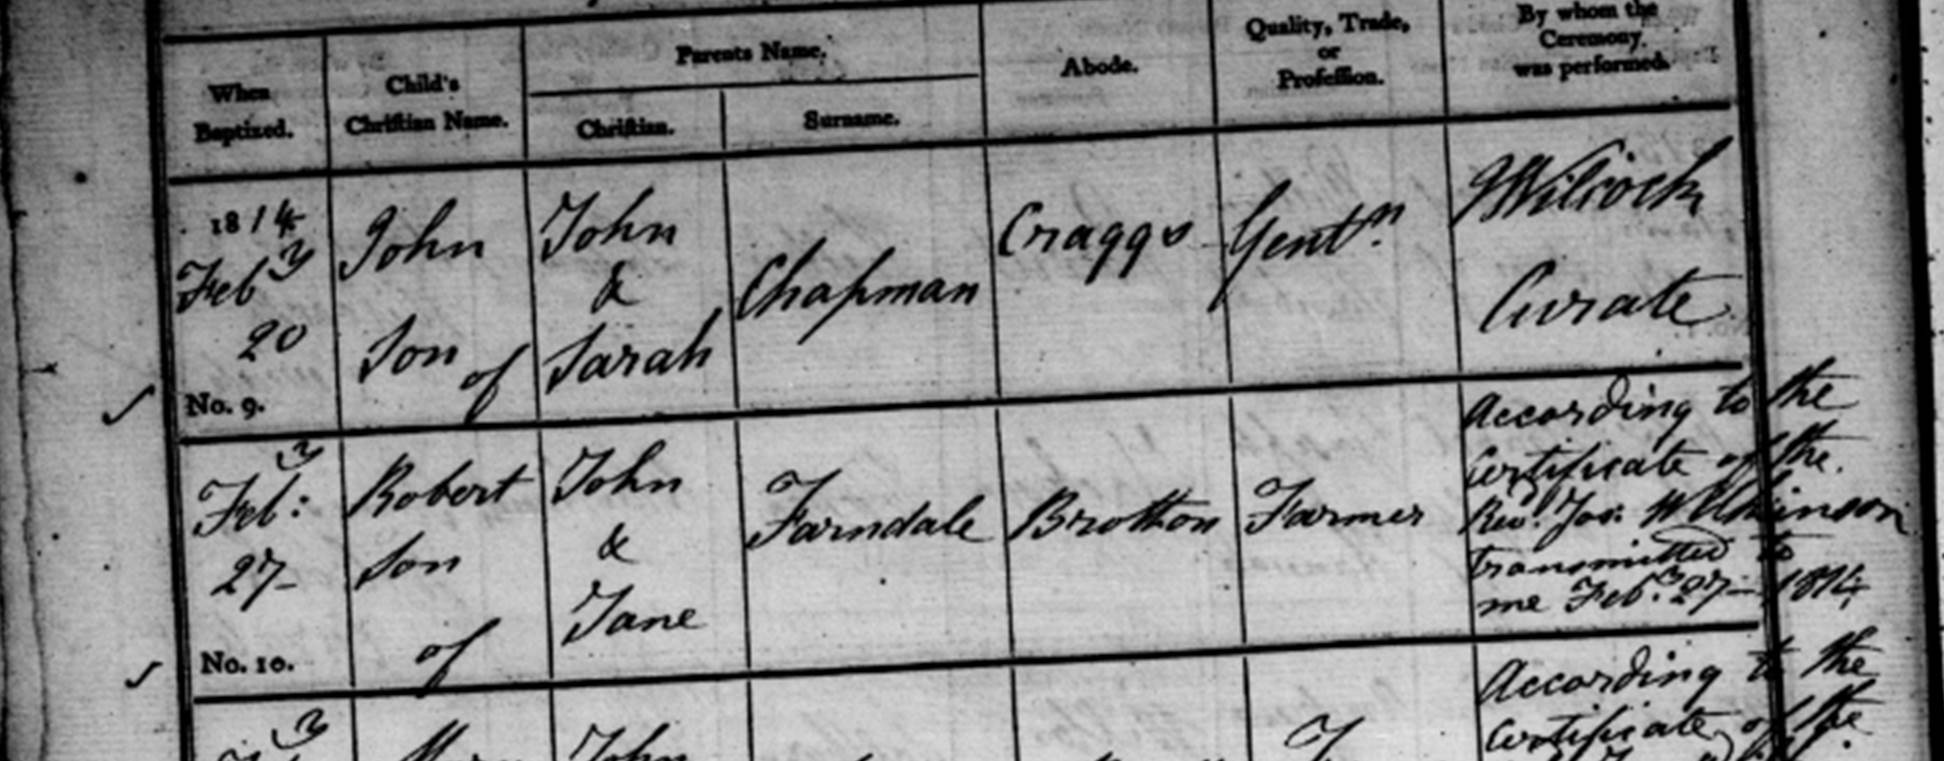 When Baptized.
Child's Christian Name.
Parents Name.
Christian.
Surname.
Abode.
Quality, Trade, or Profession.
By whom the Ceremony was performed.
1814
Feby 20
No. 9.
John
Son of
John
&
Sarah
Chapman
Craggs
Gentn
J Wilcock
Curate
Feby:
27
No. 10.
Robert
Son
of
John
&
Jane
Farndale
Brotton
Farmer
According to the
Certificate of the
Revd. Jos: Wilkinson
transmitted to
me Feby. 27 1814
John
According to the
Certificate of the